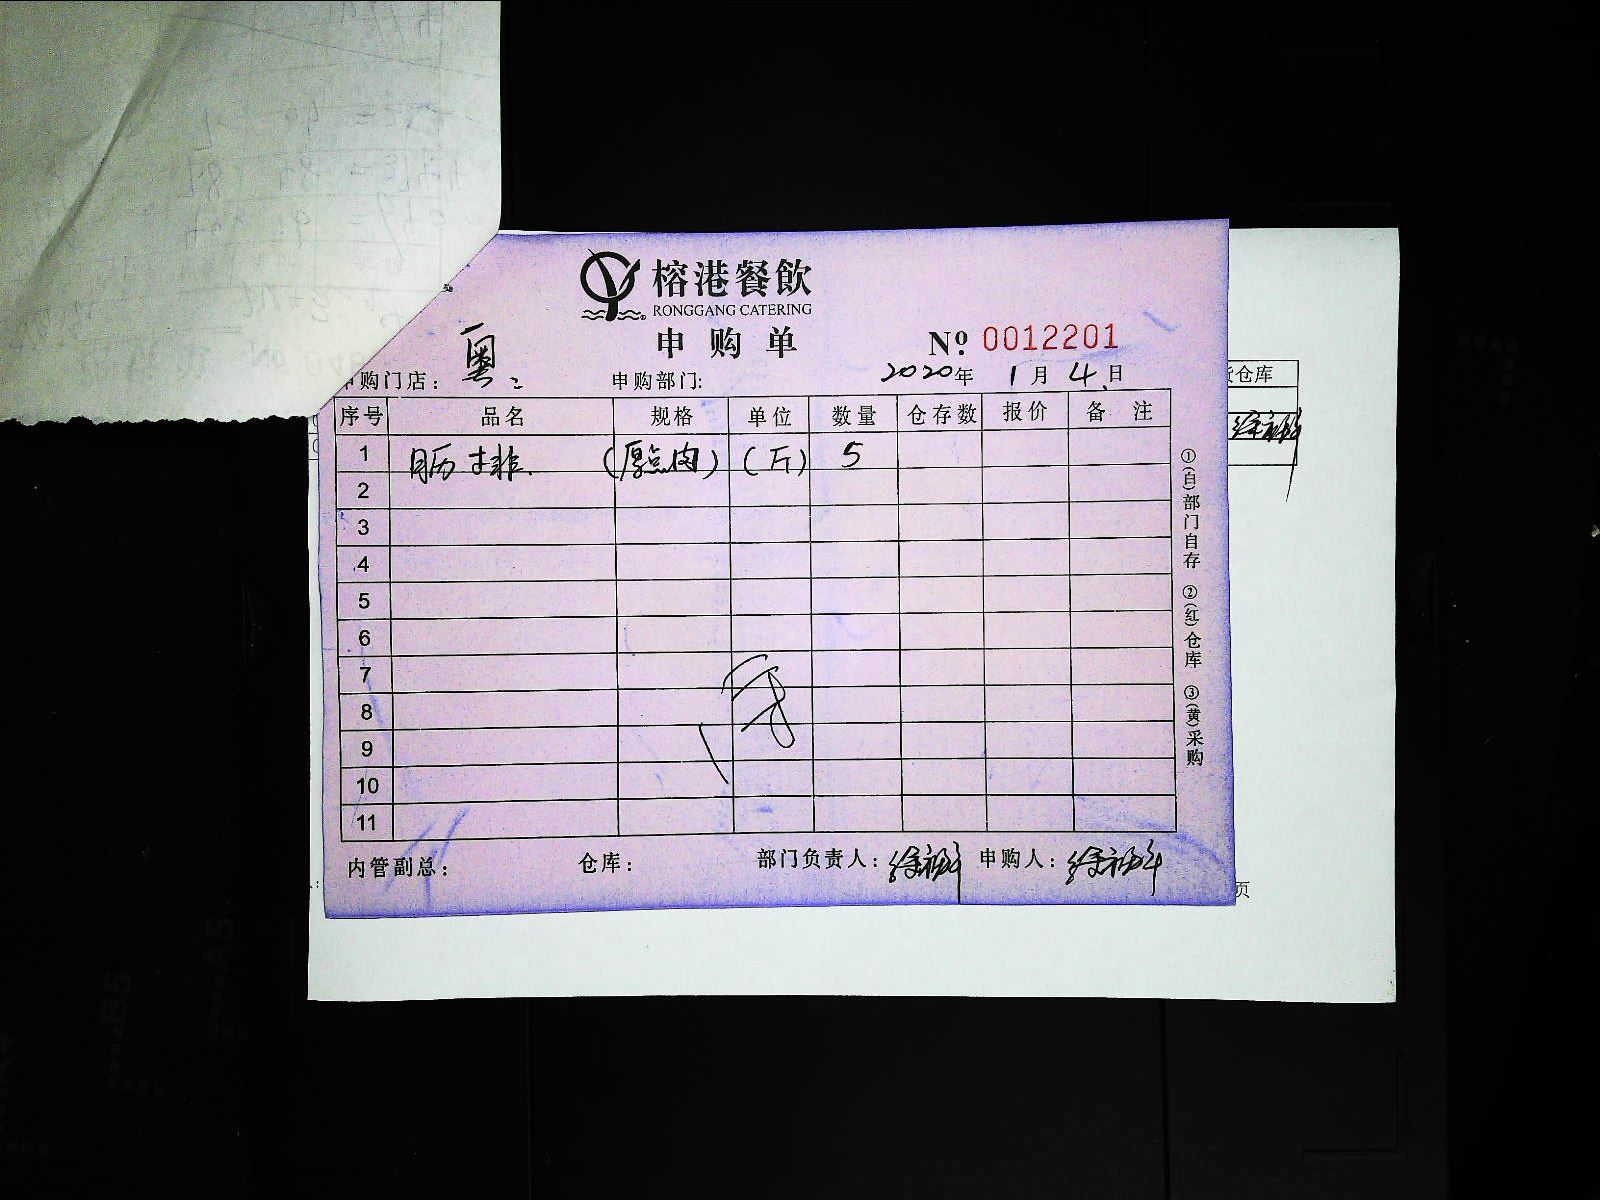 榕港餐飲
RONGGANG CATERING
申购单
№ 0012201
申购门店：粤二 申购部门: 2020年1月4日
序号 品名 规格 单位 数量 仓存数 报价 备注
1 肠排 (厚点肉) (斤) 5
2
3
4
5
6
7
8
9
10
11
内管副总： 仓库： 部门负责人： 申购人：
①(白)部门自存 ②(红)仓库 ③(黄)采购
仓库
页